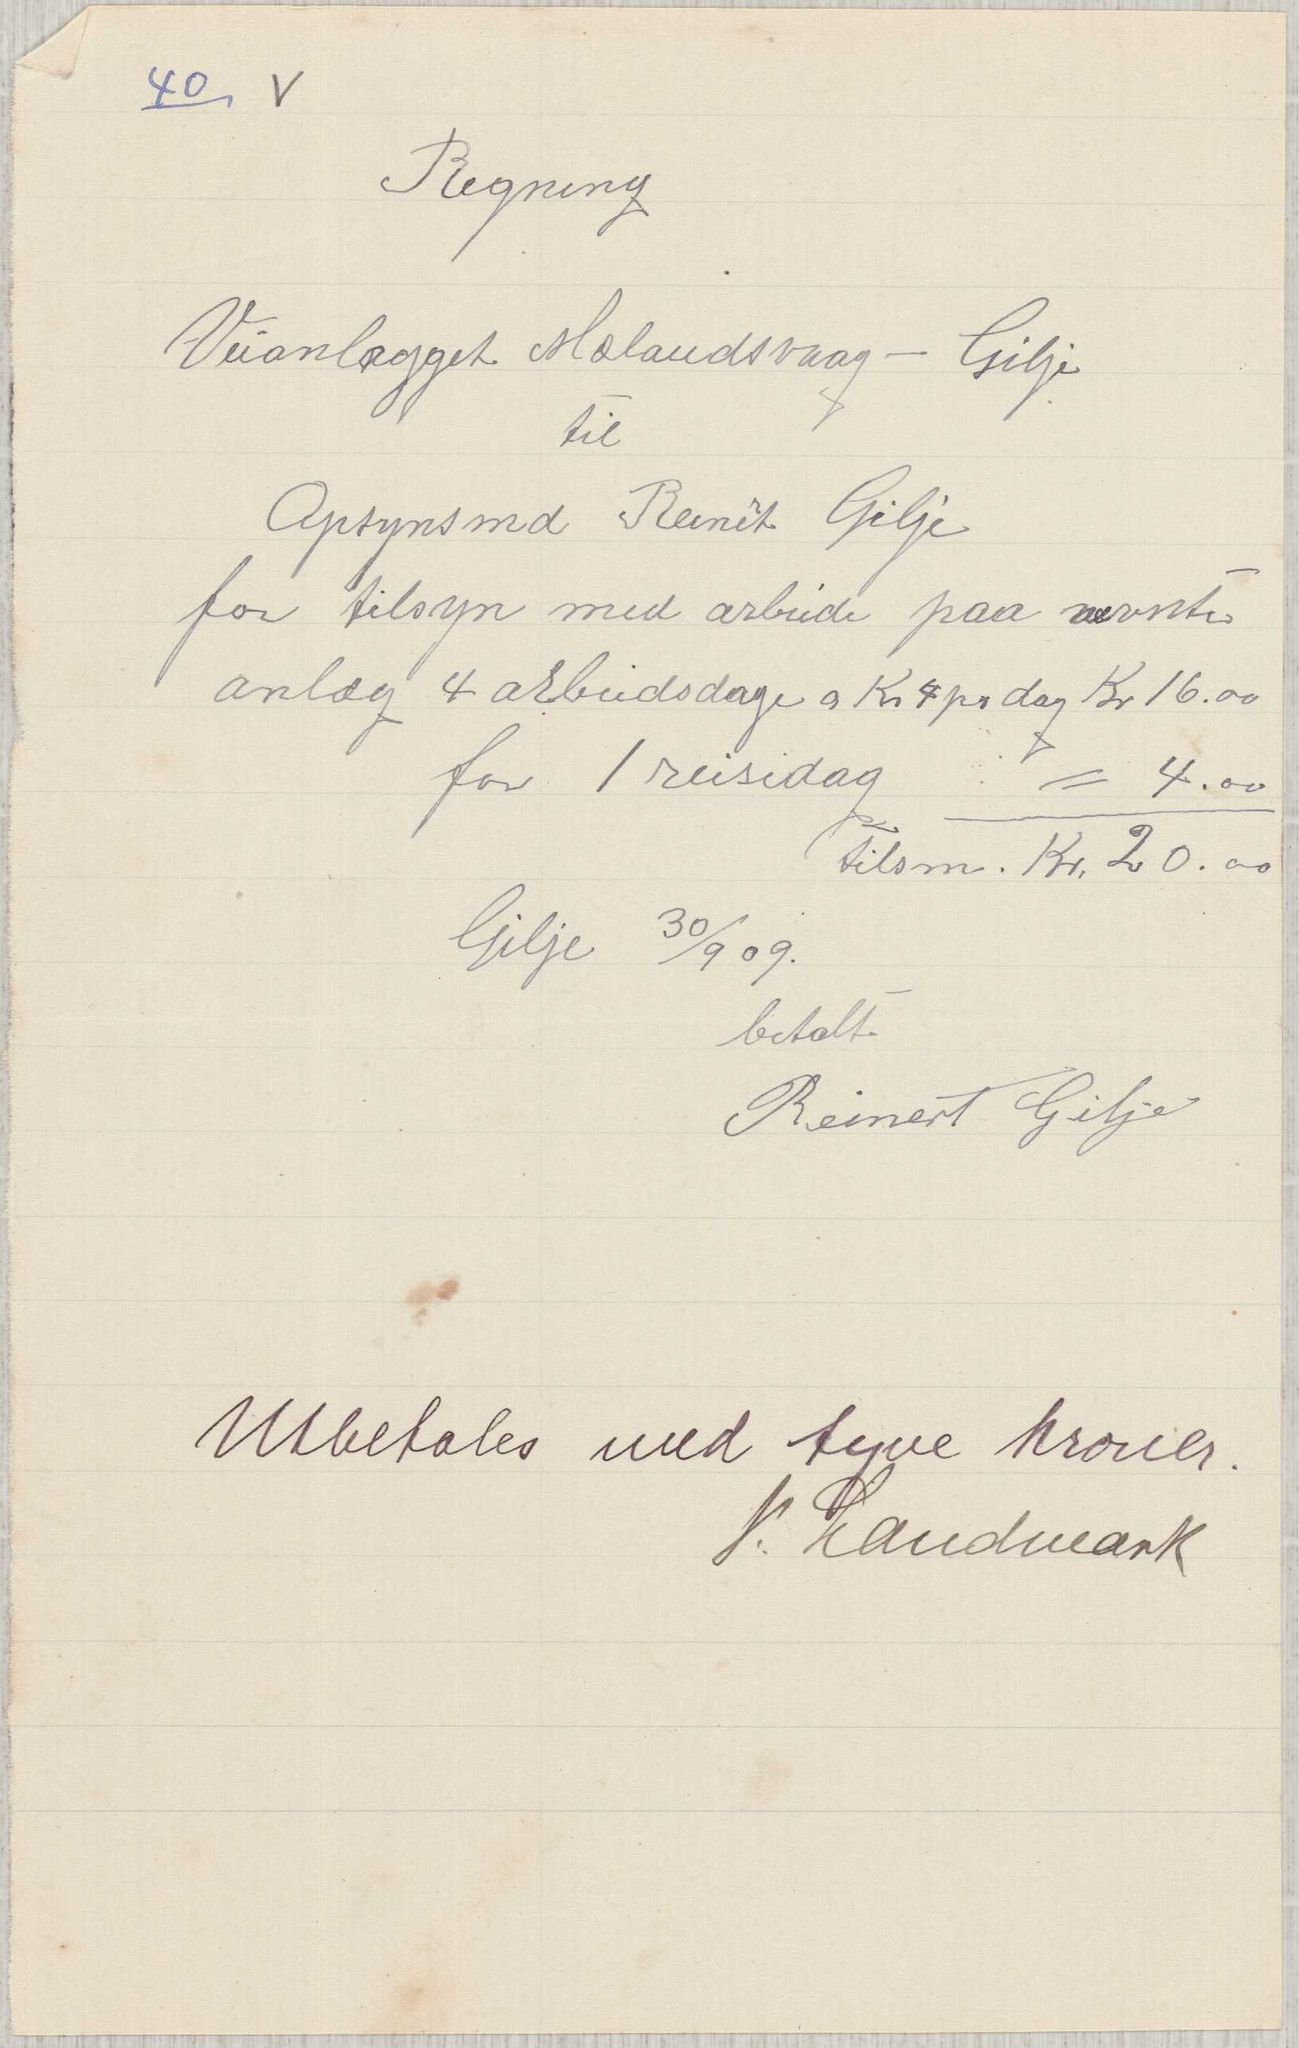 40 V
Regning
Veianlægget Mælandsvaag - Gilje
til
Opsynsmd Reinert Gilje
for tilsyn med arbeide paa nævnte
anlæg 4 arbeidsdage a Kr 4 pr dag Kr 16.00
for 1 reisedag = 4.00
tilsm. Kr. 20.00
Gilje 30/9 09.
betalt
Reinert Gilje
Utbetales med tyve kroner.
N. Landmark